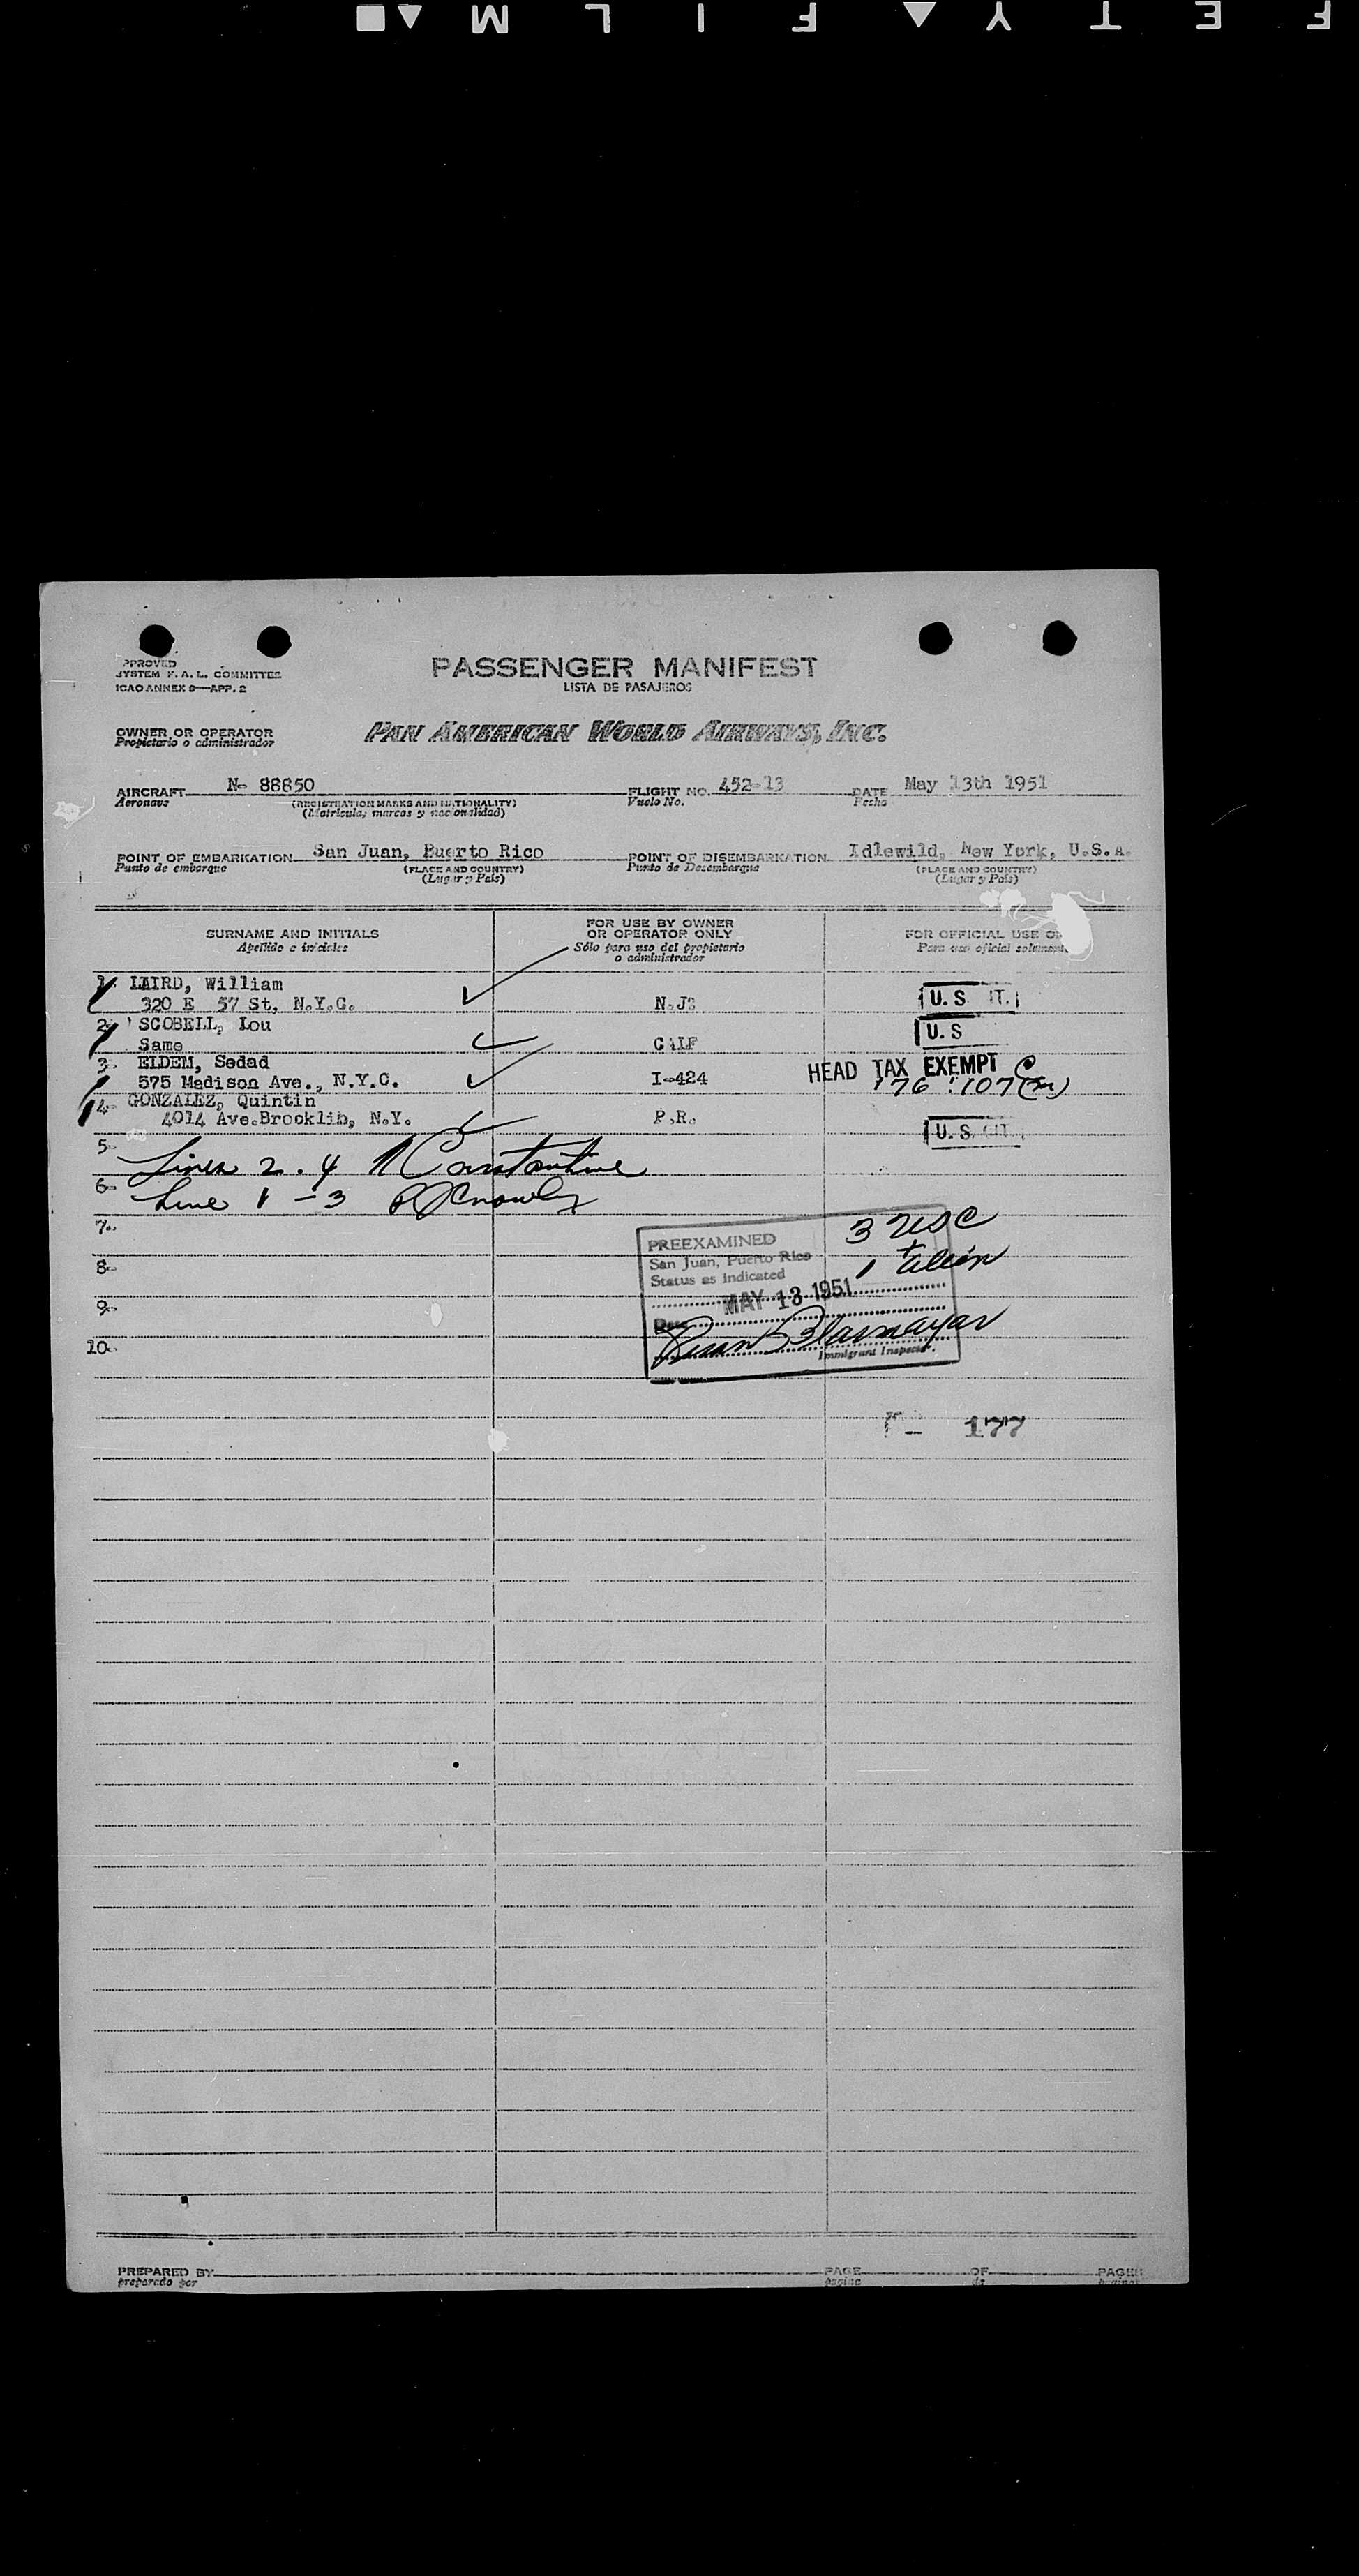 SAFETY FILM
PASSENGER MANIFEST
LISTA DE PASAJEROS
PPROVED
SYSTEM F. A. L. COMMITTEE
ICAO ANNEX 9—APP. 2
OWNER OR OPERATOR
Propietario o administrador
PAN AMERICAN WORLD AIRWAYS, INC.
AIRCRAFT N- 88850 FLIGHT NO. 452-13 DATE May 13th 1951
Aeronave (REGISTRATION MARKS AND NATIONALITY) Vuelo No. Fecha
(Matricula, marcas y nacionalidad)
POINT OF EMBARKATION San Juan, Puerto Rico POINT OF DISEMBARKATION Idlewild, New York, U.S.A.
Punto de embarque (PLACE AND COUNTRY) Punto de Desembarque (PLACE AND COUNTRY)
(Lugar y País) (Lugar y País)
SURNAME AND INITIALS FOR USE BY OWNER OR OPERATOR ONLY FOR OFFICIAL USE O
Apellido e iniciales Sólo para uso del propietario o administrador Para uso oficial solament
1. LAIRD, William
320 E 57 St, N.Y.C. N.J. U.S IT.
2. SCOBELL, Lou U.S
Same CALF
3- ELDEM, Sedad HEAD TAX EXEMPT C
575 Madison Ave., N.Y.C. I-424 176 : 107 (m)
4- GONZALEZ, Quintin
4014 Ave.Brooklin, N.Y. P.R. U.S. CIT.
5- Lines 2. 4 Constantine
6- Line 1 - 3
7-
8-
9-
10-
PREEXAMINED 3 USC
San Juan, Puerto Rico +
Status as indicated 1 alien
MAY 13 1951
Date
Immigrant Inspector.
177
PREPARED BY PAGE OF PAGES
preparado por página de páginas